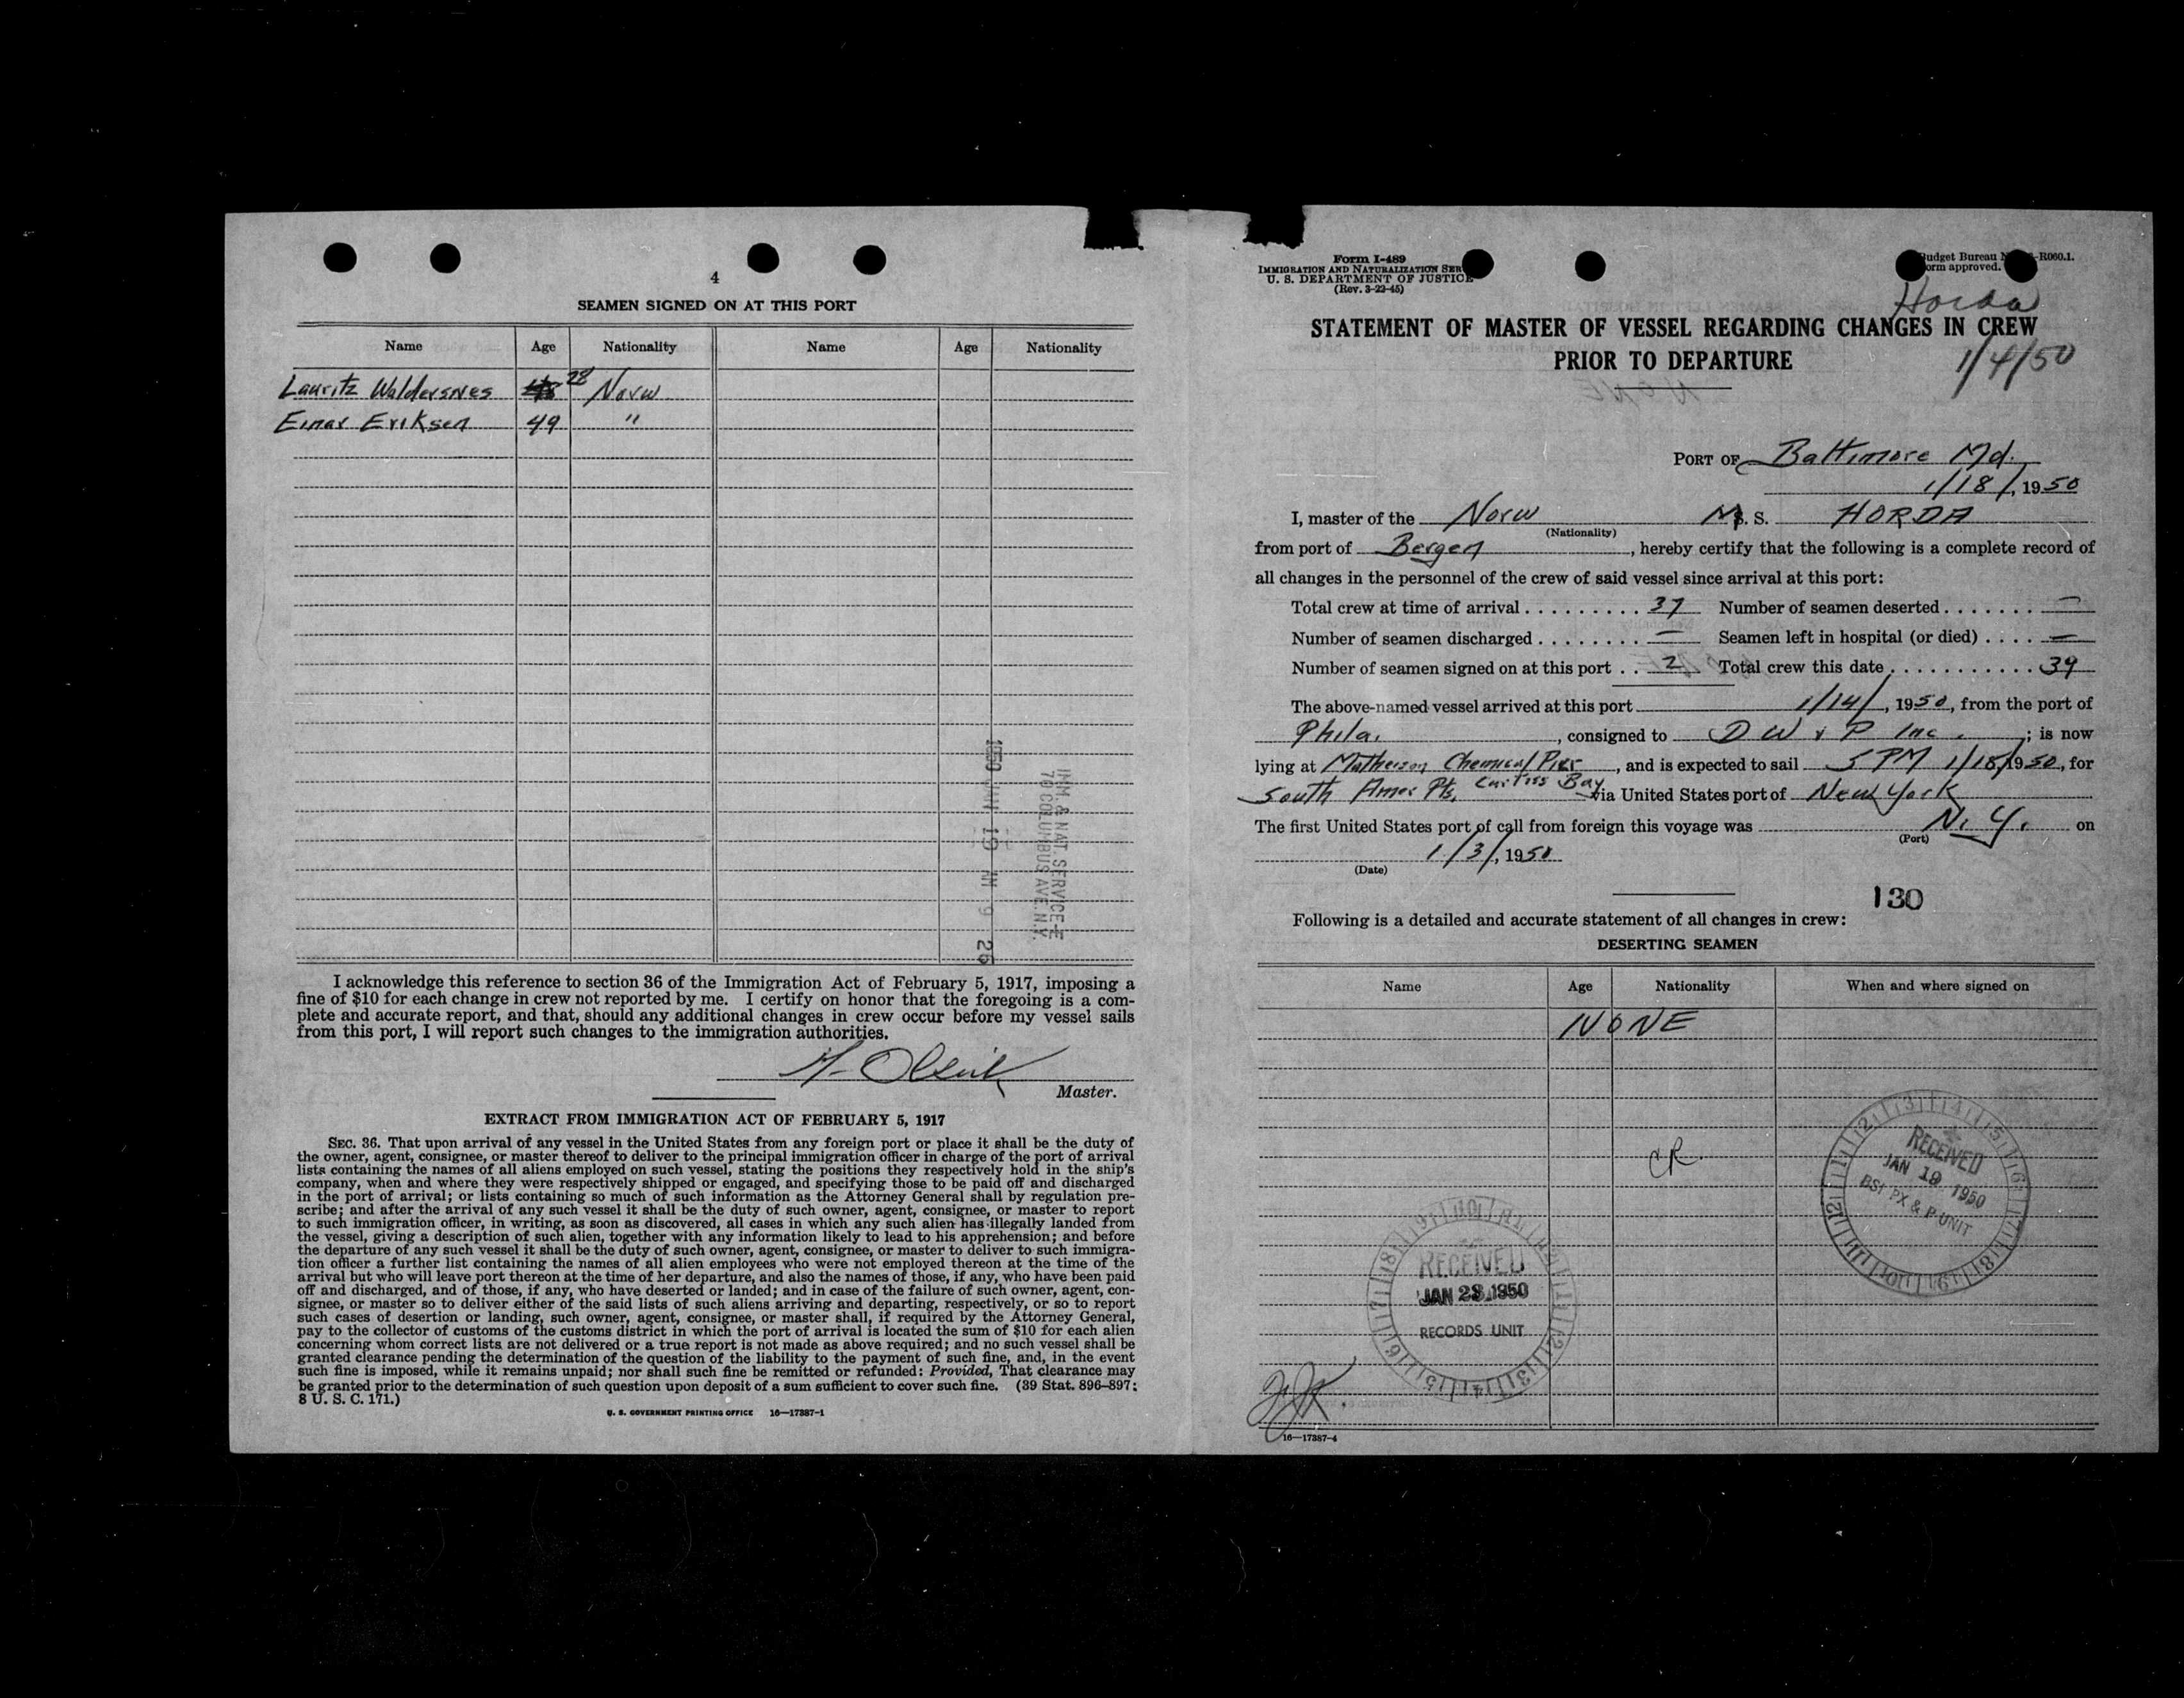 4
SEAMEN SIGNED ON AT THIS PORT
Name Age Nationality Name Age Nationality
Lauritz Waldersnes 28 Norw
Einar Eriksen 49 "
1950 JAN 19 AM 9 26
IMM. & NAT. SERVICE
70 COLUMBUS AVE. N.Y.
I acknowledge this reference to section 36 of the Immigration Act of February 5, 1917, imposing a
fine of $10 for each change in crew not reported by me. I certify on honor that the foregoing is a com-
plete and accurate report, and that, should any additional changes in crew occur before my vessel sails
from this port, I will report such changes to the immigration authorities.
Master.
EXTRACT FROM IMMIGRATION ACT OF FEBRUARY 5, 1917
SEC. 36. That upon arrival of any vessel in the United States from any foreign port or place it shall be the duty of
the owner, agent, consignee, or master thereof to deliver to the principal immigration officer in charge of the port of arrival
lists containing the names of all aliens employed on such vessel, stating the positions they respectively hold in the ship's
company, when and where they were respectively shipped or engaged, and specifying those to be paid off and discharged
in the port of arrival; or lists containing so much of such information as the Attorney General shall by regulation pre-
scribe; and after the arrival of any such vessel it shall be the duty of such owner, agent, consignee, or master to report
to such immigration officer, in writing, as soon as discovered, all cases in which any such alien has illegally landed from
the vessel, giving a description of such alien, together with any information likely to lead to his apprehension; and before
the departure of any such vessel it shall be the duty of such owner, agent, consignee, or master to deliver to such immigra-
tion officer a further list containing the names of all alien employees who were not employed thereon at the time of the
arrival but who will leave port thereon at the time of her departure, and also the names of those, if any, who have been paid
off and discharged, and of those, if any, who have deserted or landed; and in case of the failure of such owner, agent, con-
signee, or master so to deliver either of the said lists of such aliens arriving and departing, respectively, or so to report
such cases of desertion or landing, such owner, agent, consignee, or master shall, if required by the Attorney General,
pay to the collector of customs of the customs district in which the port of arrival is located the sum of $10 for each alien
concerning whom correct lists are not delivered or a true report is not made as above required; and no such vessel shall be
granted clearance pending the determination of the question of the liability to the payment of such fine, and, in the event
such fine is imposed, while it remains unpaid; nor shall such fine be remitted or refunded: Provided, That clearance may
be granted prior to the determination of such question upon deposit of a sum sufficient to cover such fine. (39 Stat. 896–897;
8 U. S. C. 171.)
U. S. GOVERNMENT PRINTING OFFICE 16—17387-1
Form I-489
IMMIGRATION AND NATURALIZATION SER
U. S. DEPARTMENT OF JUSTICE
(Rev. 3-22-45)
Budget Bureau N -R060.1.
orm approved.
Horda
STATEMENT OF MASTER OF VESSEL REGARDING CHANGES IN CREW
PRIOR TO DEPARTURE
1/4/50
PORT OF Baltimore Md.
1/18/, 1950
I, master of the Norw M. S. HORDA
(Nationality)
from port of Bergen, hereby certify that the following is a complete record of
all changes in the personnel of the crew of said vessel since arrival at this port:
Total crew at time of arrival . . . . . . . . . . 37 Number of seamen deserted . . . . . . . —
Number of seamen discharged . . . . . . . . — Seamen left in hospital (or died) . . . . —
Number of seamen signed on at this port . . 2 Total crew this date . . . . . . . . . . . . 39
The above-named vessel arrived at this port 1/14/, 1950, from the port of
Phila., consigned to D W & P Inc.; is now
lying at Mathieson Chemical Pier, and is expected to sail 5 PM 1/18/1950, for
South Amer Pts, Curtiss Bay via United States port of New York
The first United States port of call from foreign this voyage was N. Y. on
(Port)
1/3/, 1950
(Date)
130
Following is a detailed and accurate statement of all changes in crew:
DESERTING SEAMEN
Name Age Nationality When and where signed on
NONE
CR
RECEIVED
JAN 19 1950
BSI PX & P UNIT
RECEIVED
JAN 23 1950
RECORDS UNIT
16—17387-4